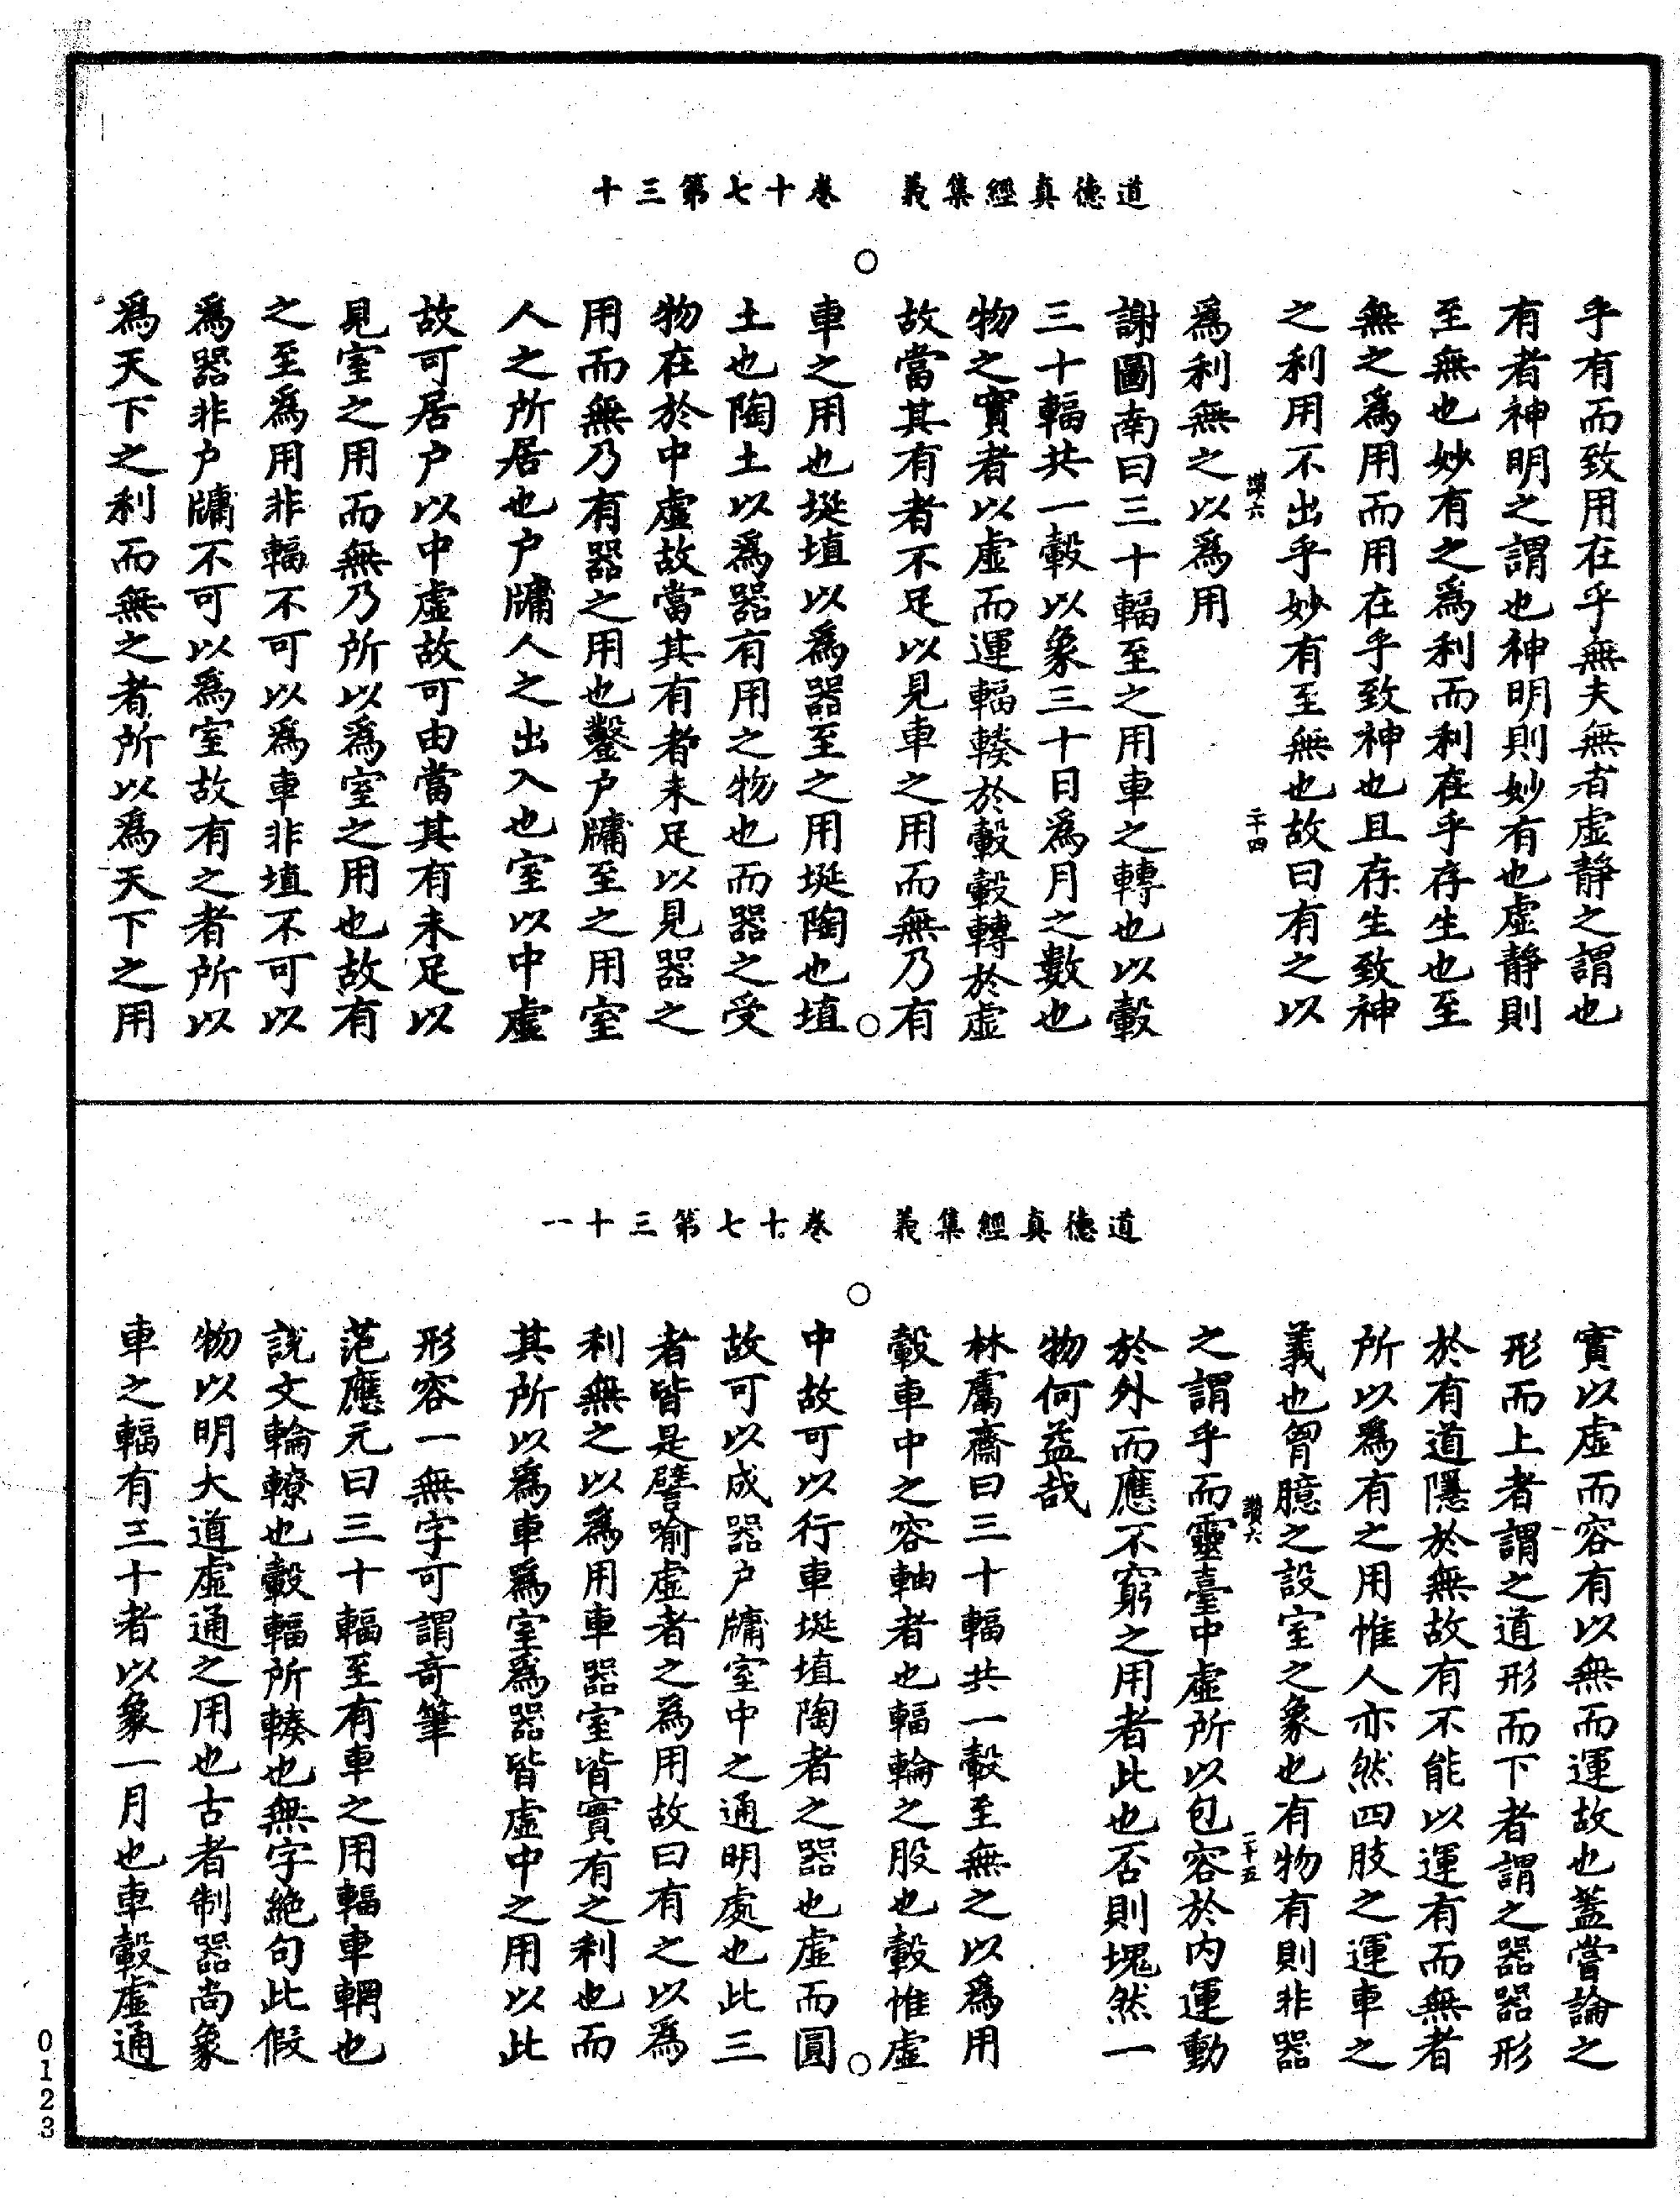 道德真經集義　卷十七第三十
乎有而致用在乎無夫無者虛靜之謂也
有者神明之謂也神明則妙有也虛靜則
至無也妙有之爲利而利在乎存生也至
無之爲用而用在乎致神也且存生致神
之利用不出乎妙有至無也故曰有之以
讚六　二十四
爲利無之以爲用
謝圖南曰三十輻至之用車之轉也以轂
三十輻共一轂以象三十日爲月之數也
物之實者以虛而運輻輳於轂轂轉於虛
故當其有者不足以見車之用而無乃有
車之用也埏埴以爲器至之用埏陶也埴
土也陶土以爲器有用之物也而器之受
物在於中虛故當其有者未足以見器之
用而無乃有器之用也鑿户牖至之用室
人之所居也户牖人之出入也室以中虛
故可居户以中虛故可由當其有未足以
見室之用而無乃所以爲室之用也故有
之至爲用非輻不可以爲車非埴不可以
爲器非户牖不可以爲室故有之者所以
爲天下之利而無之者所以爲天下之用
道德真經集義　卷十七第三十一
實以虛而容有以無而運故也蓋嘗論之
形而上者謂之道形而下者謂之器器形
於有道隱於無故有不能以運有而無者
所以爲有之用惟人亦然四肢之運車之
義也胷臆之設室之象也有物有則非器
讚六　二十五
之謂乎而靈臺中虛所以包容於内運動
於外而應不窮之用者此也否則塊然一
物何益哉
林鬳齋曰三十輻共一轂至無之以爲用
轂車中之容軸者也輻輪之股也轂惟虛
中故可以行車埏埴陶者之器也虛而圓
故可以成器户牖室中之通明處也此三
者皆是譬喻虛者之爲用故曰有之以爲
利無之以爲用車器室皆實有之利也而
其所以爲車爲室爲器皆虛中之用以此
形容一無字可謂奇筆
范應元曰三十輻至有車之用輻車輞也
説文輪轑也轂輻所輳也無字絶句此假
物以明大道虛通之用也古者制器尚象
車之輻有三十者以象一月也車轂虛通
0123